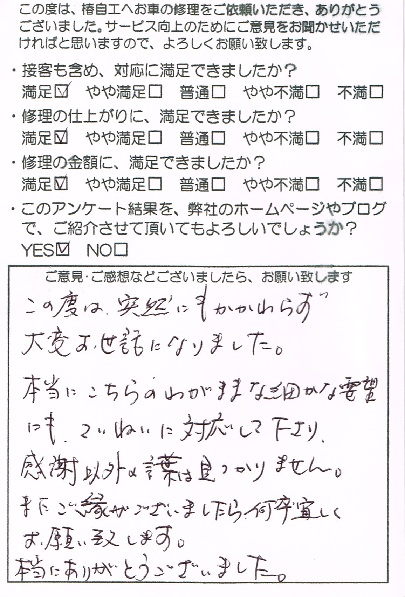 この度は、椿自工へお車の修理をご依頼いただき、ありがとう
ございました。サービス向上のためにご意見をお聞かせいただ
ければと思いますので、よろしくお願い致します。
・接客も含め、対応に満足できましたか？
満足☑ やや満足□ 普通□ やや不満□ 不満□
・修理の仕上がりに、満足できましたか？
満足☑ やや満足□ 普通□ やや不満□ 不満□
・修理の金額に、満足できましたか？
満足☑ やや満足□ 普通□ やや不満□ 不満□
・このアンケート結果を、弊社のホームページやブログ
で、ご紹介させて頂いてもよろしいでしょうか？
YES☑ NO□
ご意見・ご感想などございましたら、お願い致します
この度は、突然にもかかわらず
大変お世話になりました。
本当にこちらのわがままな細かな要望
にも、ていねいに対応して下さり、
感謝以外の言葉は見つかりません。
またご縁がございましたら、何卒宜しく
お願い致します。
本当にありがとうございました。